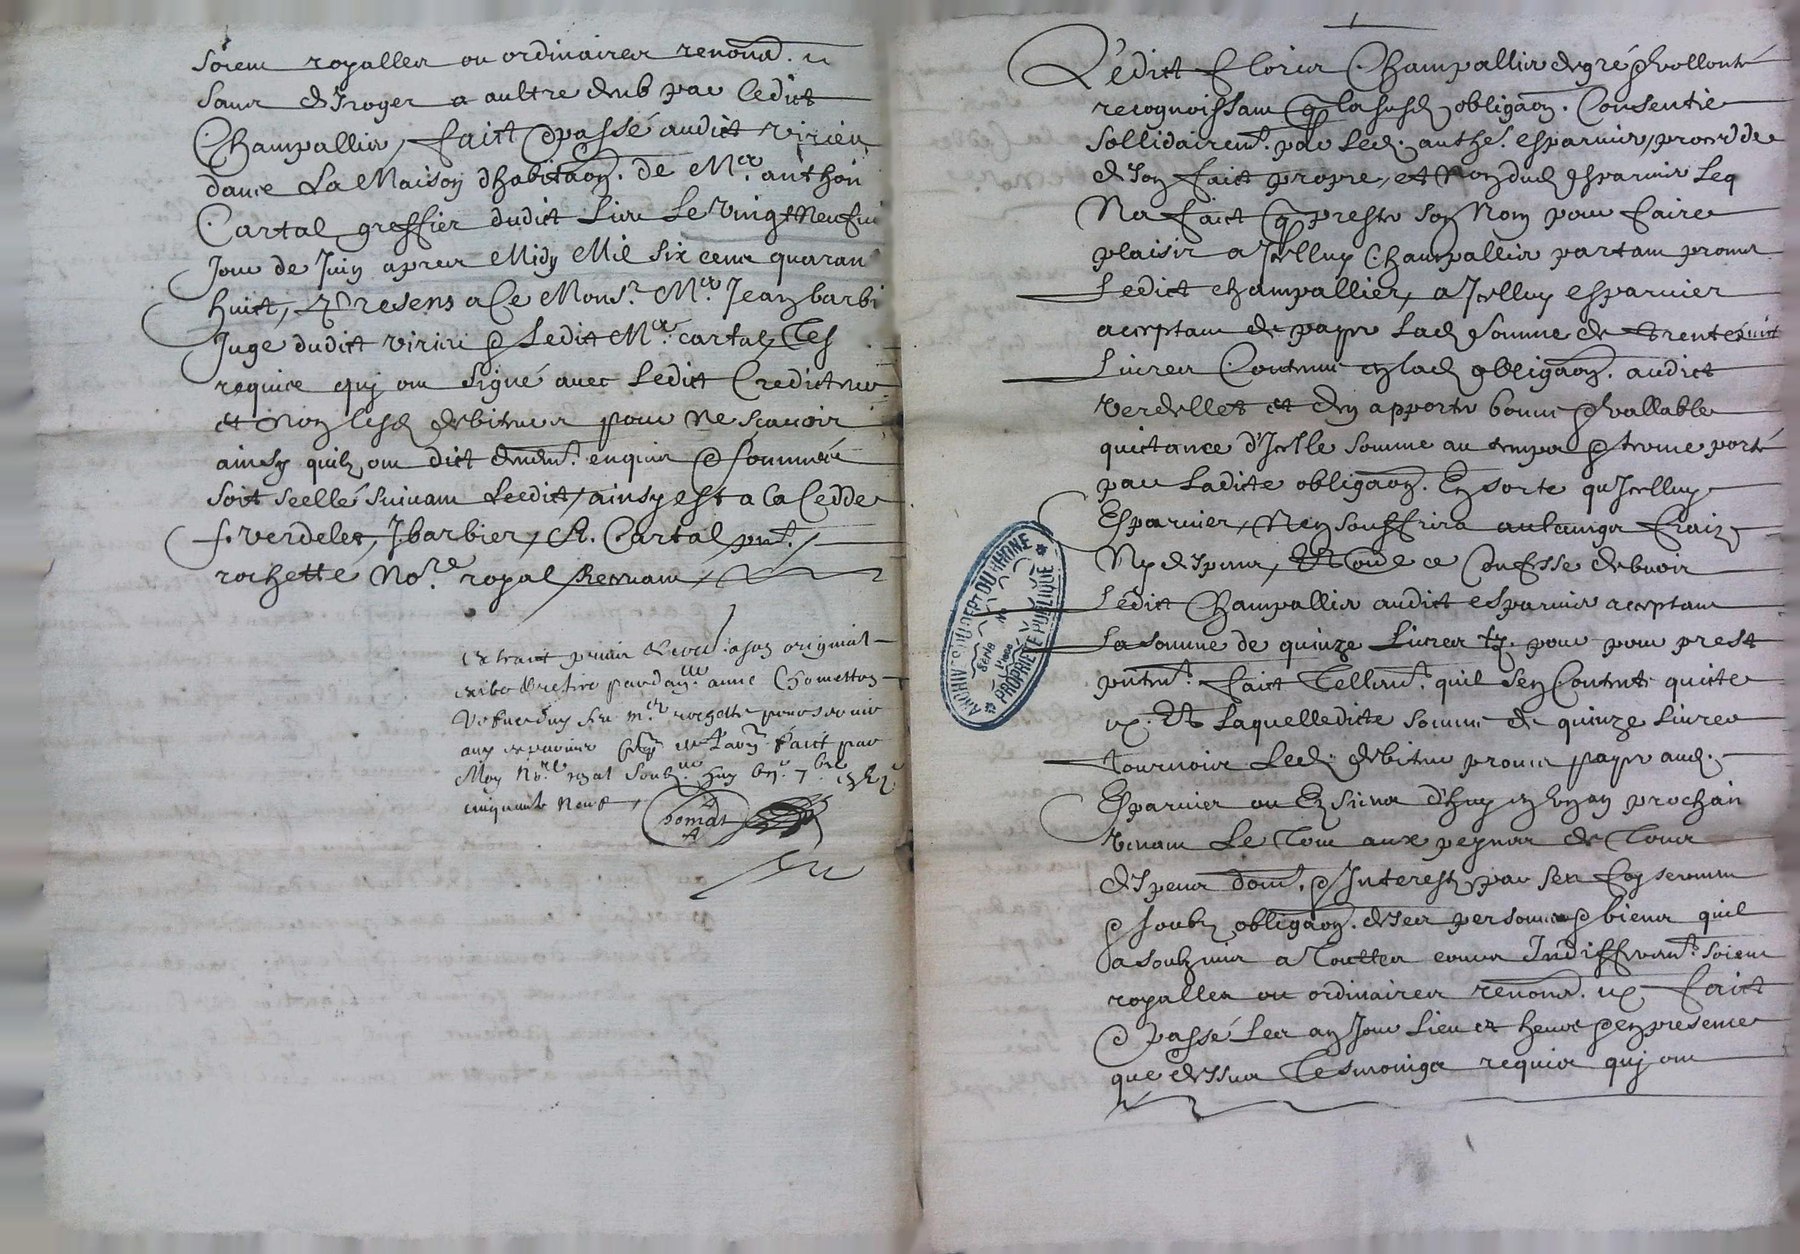 soient royalles ou ordinaires renond.
sans desroger a aultre deub par ledict
Champallier, faict & passé audict virieu
dans la Maison d'habitaon. de Mer. anthoi
Cartal greffier dudict lieu le vingt neufvi
Jour de Juin apres Midy Mil six cens quaran
huict, Presens a ce Monsr. Mer. Jean barbi
Juge dudict virieu & ledit Mer. Cartal Tes
requis quj ont signé avec ledict Crediteur
et non lesd. debiteurs pour ne scavoir
ainsy quilz ont dict deuemt. enquis & sommés
soit scellé suivant leedict, ainsy est a la cedde
f. verdelet, J barbier, A. Cartal pnt.
rochette Nore. royal Recevant
extraict prins & levé a son original
exibé & retiré par damlle anne Chometton
vefve du feu mer rochette pour servir
aux esparvier faict par
Moy Nore. royal soubzné. huy 7bre
cinquante neuf,
Chomat
Ledict Floris Champallier de gré & vollonté
recognoissant q lasusd. obligaon. Consentie
sollidairemt. par led. anthe. esparvier, procedde
de son faict propre, et Non dud. esparvier leq
Na faict q prester son Nom pour faire
plaisir a Jcelluy Champallier partant promet
Ledict champallier, a Jcelluy esparvier
acceptant de payer lad. somme de trente huit
Livres Contenue en lad. obligaon. audict
Verdellet et den apporter bonne & vallable
quictance d'Jcelle somme au temps & terme porté
par Ladicte obligaon. En sorte qu'Jcelluy
Esparvier, Nen souffrira aulcungs fraiz
Ny despens, Et oultre ce Confesse debvoir
Ledict Champallier audict esparvier acceptant
La somme de quinze Livres tz. pour pour prest
pntemt. faict Tellemt. quil sen Contente quicte
Et Laquelledicte somme de quinze livres
tournois Led. debiteur promet payer aud.
Esparvier ou Es siens d'huy en Ung an prochain
venant Le tout aux peynes de tous
despens dom. & Interestz par sa foy serment
& soubz obligaon. de ses personne & biens quil
a soubzmis a Touttes cours Indifferamt. soient
royalles ou ordinaires renond. faict
& passé Les an Jour lieu et heure & en presence
que dessus Tesmoings requis quj ont
ARCHIVES DU DEPT DU RHONE
Série
No
Liasse
PROPRIETE PUBLIQUE